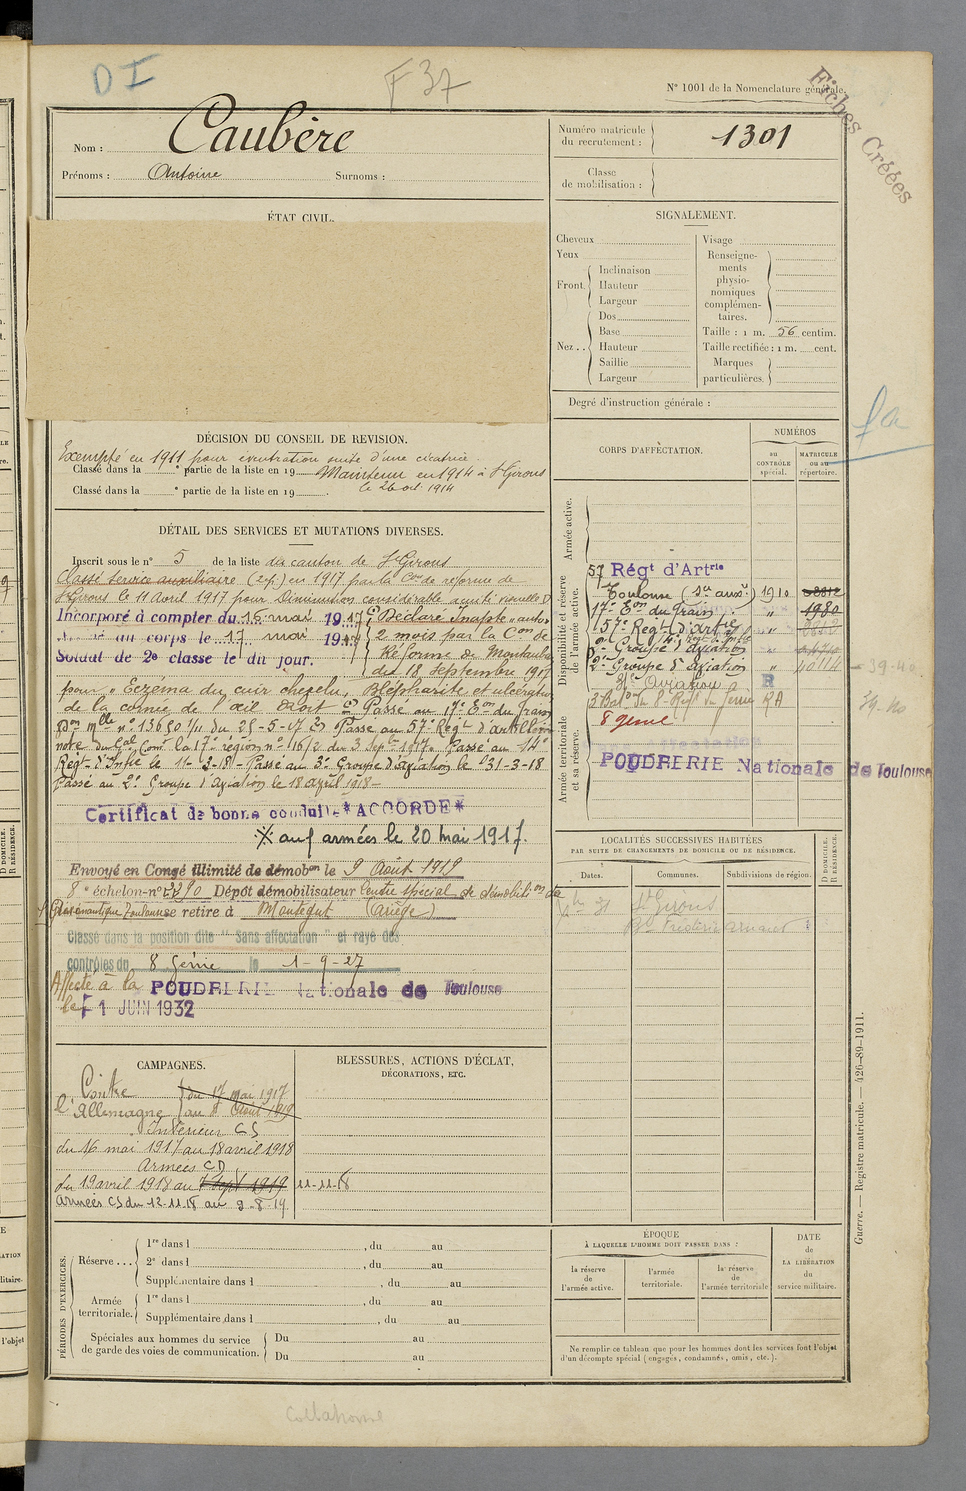 DI
F 37
N° 1001 de la Nomenclature générale.
Fiches Créées
Nom : Caubère
Prénoms : Antoine Surnoms :
Numéro matricule du recrutement : 1301
Classe de mobilisation :
ÉTAT CIVIL.
SIGNALEMENT.
Cheveux
Yeux
Front. Inclinaison
Hauteur
Largeur
Nez .. Dos
Base
Hauteur
Saillie
Largeur
Visage
Renseigne-
ments
physio-
nomiques
complémen-
taires.
Taille : 1 m. 56 centim.
Taille rectifiée : 1 m. cent.
Marques
particulières.
Degré d'instruction générale :
DÉCISION DU CONSEIL DE REVISION.
Exempté en 1911 pour éventration suite d'une cicatrice.
Classé dans la ° partie de la liste en 19 Maintenu en 1914 à St Girons
Classé dans la ° partie de la liste en 19 . le 26 oct. 1914
DÉTAIL DES SERVICES ET MUTATIONS DIVERSES.
Inscrit sous le n° 5 de la liste du canton de St Girons
Classé Service auxiliaire en 1917 par la Con de réforme de
St Girons le 11 Avril 1917 pour Diminution considérable acuité visuelle
Incorporé à compter du 16 mai 1917
au corps le 17 mai 19
Soldat de 2e classe le dit jour.
Déclaré Inapte
2 mois par la Con de
Réforme de Montauban
du 18 septembre 1917
pour " Eczéma du cuir chevelu, Blépharite et ulcération
de la cornée de l'œil droit Passé au 17e Eon du Train
Passé au 57e Régt d'artillerie
note du Gal Comt la 17e région n° 116/2 du 3 septbre 1917. Passé au 14e
Régt d'Infie le 11-2-18 - Passé au 3e Groupe d'aviation le 31-3-18
Passé au 2e Groupe d'Aviation le 18 avril 1918 -
Certificat de bonne conduite *ACCORDE*
※ auf armées le 20 mai 1917.
Envoyé en Congé illimité de démobon le 9 Août 1919
8e échelon - n° Dépôt démobilisateur Centre spécial de démobilison de
l'aéronautique Toulouse se retire à Montégut (Ariège)
Classé dans la position dite "Sans affectation" et rayé des
contrôles du 8 Génie le 1-9-27
Affecté à la POUDRERIE Nationale de Toulouse
le 1 JUIN 1932
CORPS D'AFFECTATION.
NUMÉROS
au CONTRÔLE spécial.
MATRICULE ou au répertoire.
fa
Armée active.
Disponibilité et réserve de l'armée active.
57 Régt d'Artrie
Toulouse (Sce aux.) 1910
17e Eon du Train " 1980
57e Regt d'artie "
3e Groupe d'aviation "
2e Groupe d'aviation " 40114
Aviation R
3 Baton du 8e Régt du Génie RA
8 génie
39-40
39-40
Armée territoriale et sa réserve.
POUDRERIE Nationale de Toulouse
LOCALITÉS SUCCESSIVES HABITÉES
PAR SUITE DE CHANGEMENTS DE DOMICILE OU DE RÉSIDENCE.
Dates. Communes. Subdivisions de région. D DOMICILE. R RÉSIDENCE.
31 St Girons
Bd Frédéric Arnaud
CAMPAGNES.
BLESSURES, ACTIONS D'ÉCLAT,
DÉCORATIONS, ETC.
Contre du 17 mai 1917
l'Allemagne au Août 1919
Intérieur CS
du 16 mai 1917 au 18 avril 1918
Armées CD
du 19 avril 1918 au 7 sept 1919 11-11-18
Armées CS du 12-11-18 au 9-8-19.
PÉRIODES D'EXERCICES.
Réserve ... 1re dans l , du au
2e dans l , du au
Supplémentaire dans l , du au
Armée territoriale. 1re dans l , du au
Supplémentaire dans l , du au
Spéciales aux hommes du service
de garde des voies de communication. Du au
Du au
ÉPOQUE
À LAQUELLE L'HOMME DOIT PASSER DANS :
la réserve de l'armée active.
l'armée territoriale.
la réserve de l'armée territoriale
DATE de LA LIBÉRATION du service militaire.
Ne remplir ce tableau que pour les hommes dont les services font l'objet
d'un décompte spécial (engagés, condamnés, omis, etc.).
Guerre. — Registre matricule. — 426-89-1911.